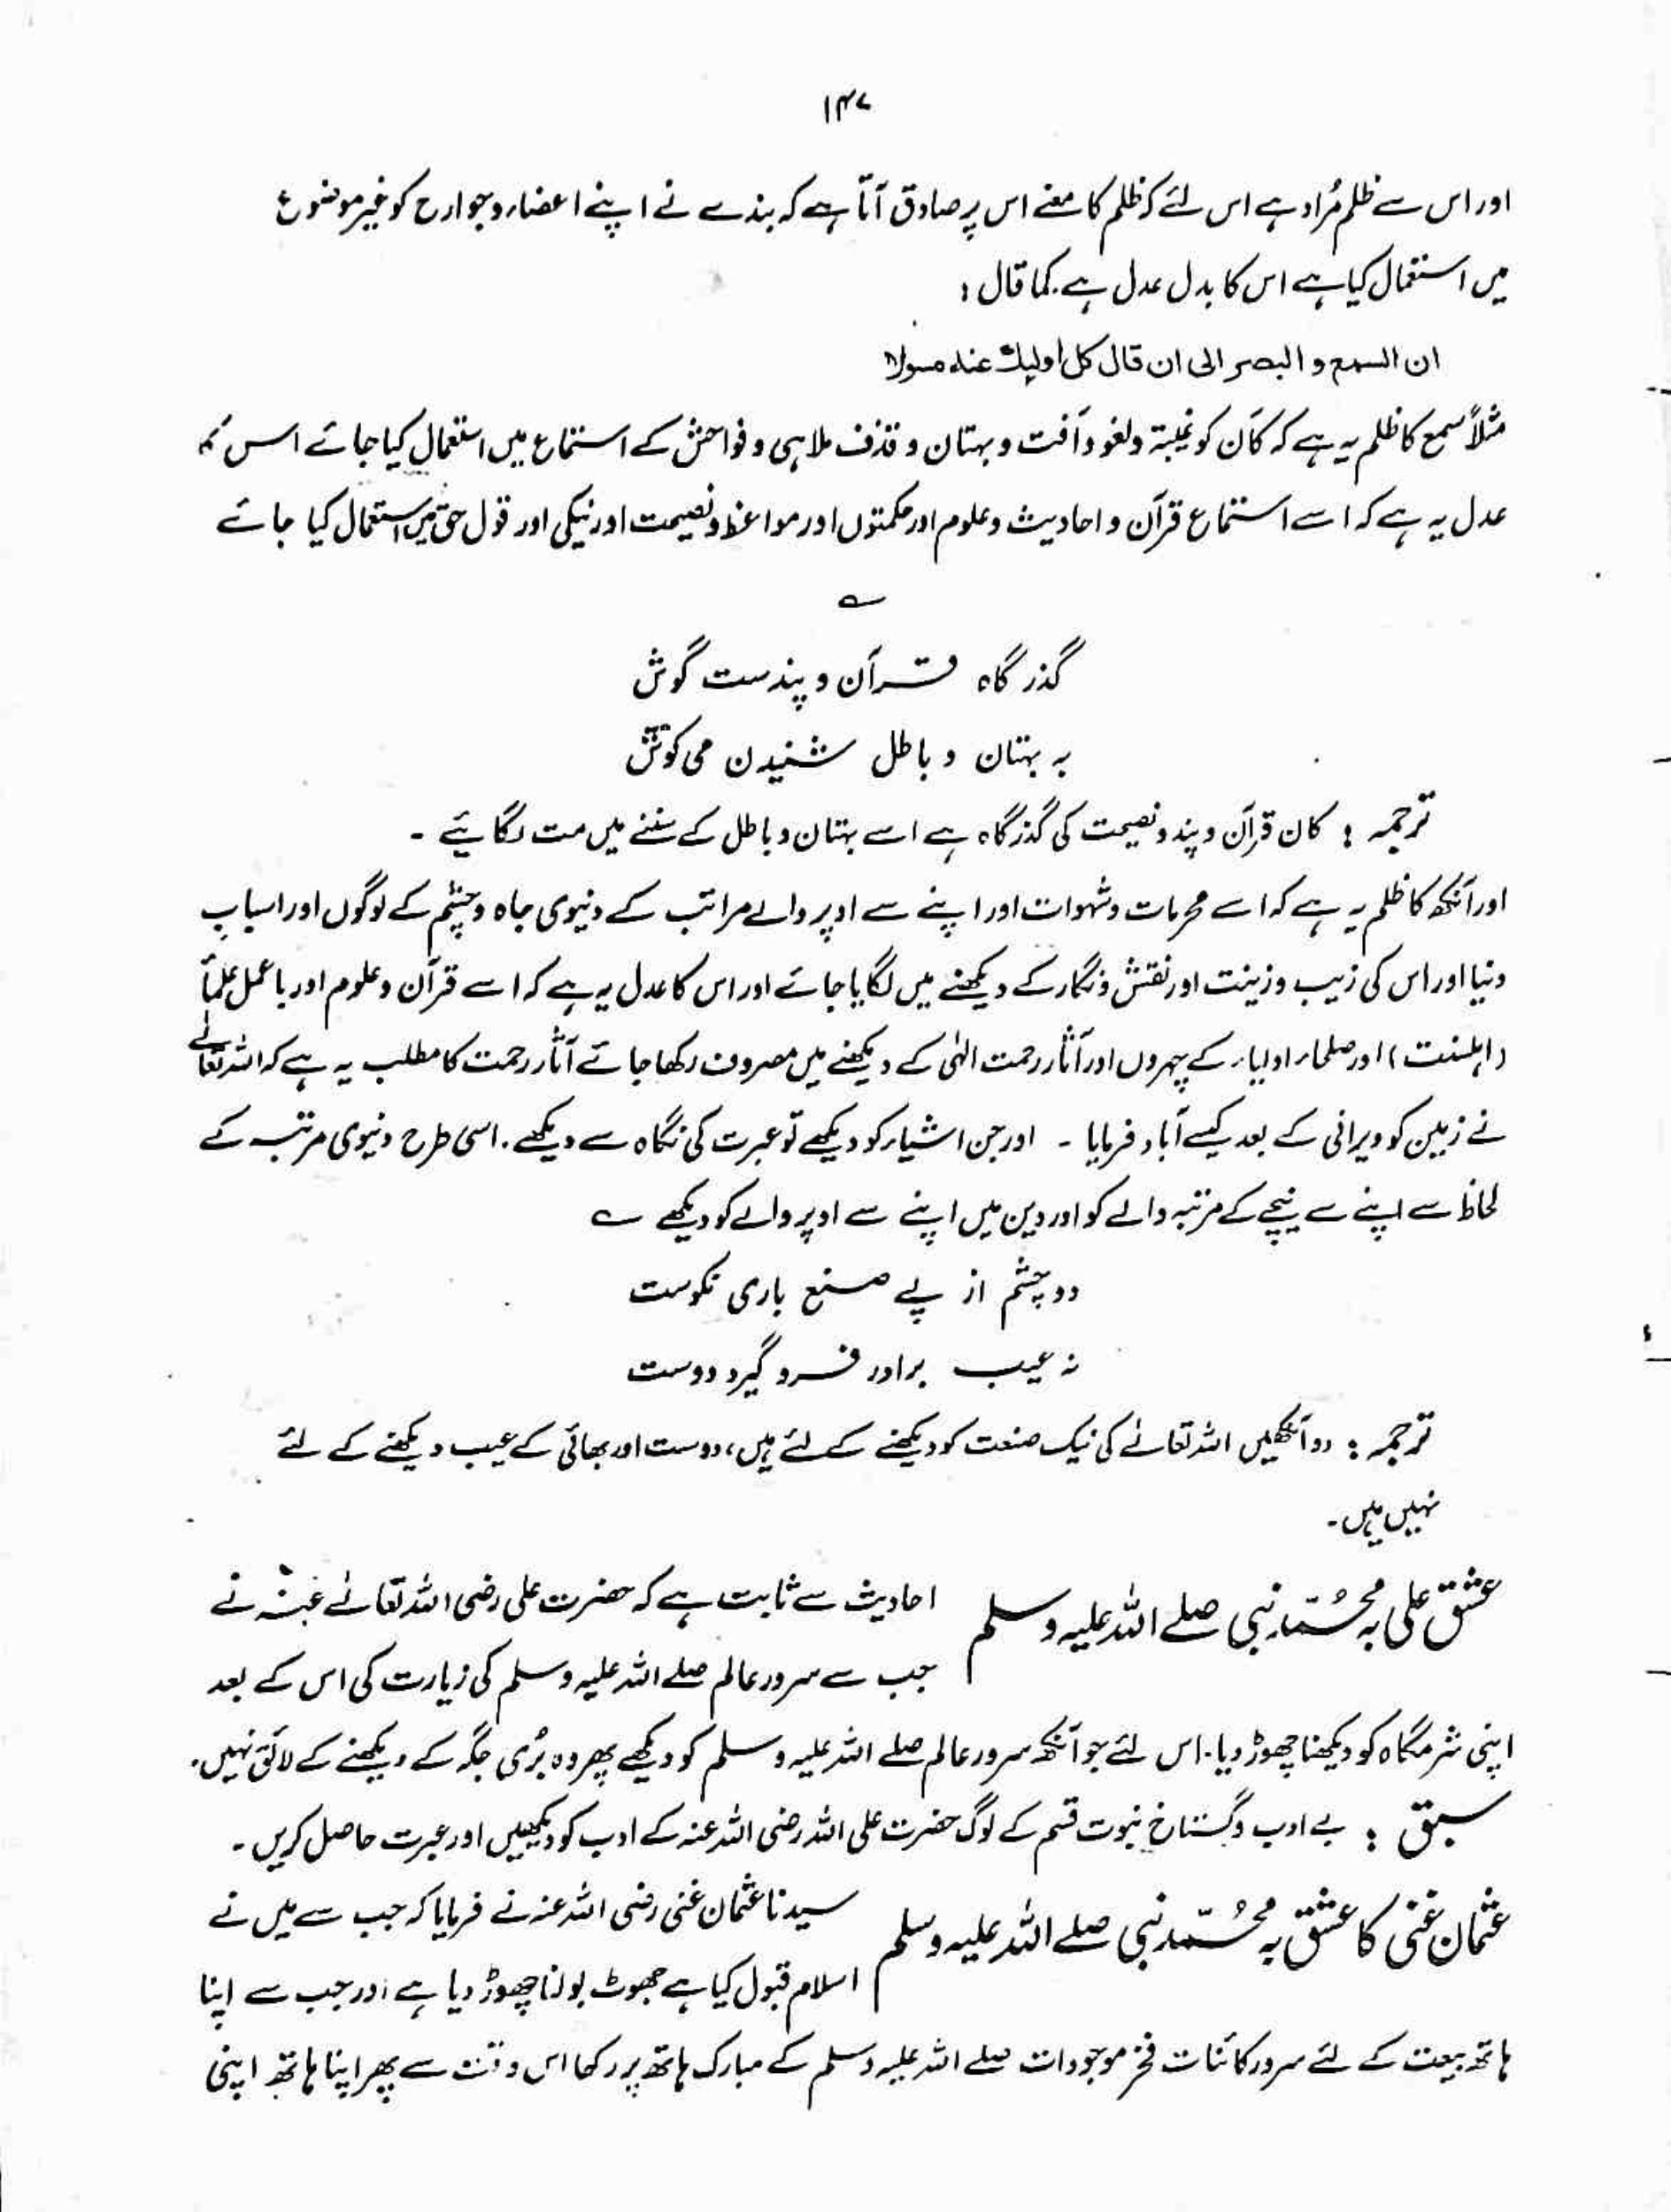 ۱۴۷
اور اس سے ظلم مُراد ہے اس لئے کہ ظلم کا معنے اس پر صادق آتا ہے کہ بندے نے اپنے اعضاء و جوارح کو غیر موضوع
میں استعمال کیا ہے اس کا بدل عدل ہے۔ کما قال :
ان السمع و البصر الی ان قال کل اولیك عنه مسولا
مثلاً سمع کا ظلم یہ ہے کہ کان کو غیبۃ و لغو و آفت و بہتان و قذف ملاہی و فواحش کے استماع میں استعمال کیا جائے اس کا
عدل یہ ہے کہ اسے استماع قرآن و احادیث و علوم اور حکمتوں اور مواعظ و نصیحت اور نیکی اور قول حق میں استعمال کیا جائے
؎
گذر گاہ قرآن و پندست گوش
بہ بہتان و باطل شنیدن می کوش
ترجمہ : کان قرآن و پند و نصیحت کی گذرگاہ ہے اسے بہتان و باطل کے سننے میں مت لگائیے ۔
اور آنکھ کا ظلم یہ ہے کہ اسے محرمات و شہوات اور اپنے سے اوپر والے مراتب کے دنیوی جاہ و چشم کے لوگوں اور اسبابِ
دنیا اور اس کی زیب و زینت اور نقش و نگار کے دیکھنے میں لگایا جائے اور اس کا عدل یہ ہے کہ اسے قرآن و علوم اور باعمل علمأ
(اہلسنت) اور صلحاء اولیاء کے چہروں اور آثار رحمت الٰہی کے دیکھنے میں مصروف رکھا جائے آثار رحمت کا مطلب یہ ہے کہ اللہ تعالےٰ
نے زمین کو ویرانی کے بعد کیسے آباد فرمایا ۔ اور جن اشیاء کو دیکھے تو عبرت کی نگاہ سے دیکھے۔ اسی طرح دنیوی مرتبہ کے
لحاظ سے اپنے سے نیچے کے مرتبہ والے کو اور دین میں اپنے سے اوپر والے کو دیکھے ؎
دو چشم از پے صنع باری نکوست
نہ عیب برادر فرو گیرد دوست
ترجمہ : دو آنکھیں اللہ تعالےٰ کی نیک صنعت کو دیکھنے کے لئے ہیں، دوست اور بھائی کے عیب دیکھنے کے لئے
نہیں ہیں۔
عشق علی بہ محمّد نبی صلے اللہ علیہ وسلم احادیث سے ثابت ہے کہ حضرت علی رضی اللہ تعالےٰ عنہ نے
جب سے سرور عالم صلے اللہ علیہ وسلم کی زیارت کی اس کے بعد
اپنی شرمگاہ کو دیکھنا چھوڑ دیا۔ اس لئے جو آنکھ سرور عالم صلے اللہ علیہ وسلم کو دیکھے پھر وہ بُری جگہ کے دیکھنے کے لائق نہیں۔
سبق : بے ادب و گستاخ نبوت قسم کے لوگ حضرت علی اللہ رضی اللہ عنہ کے ادب کو دیکھیں اور عبرت حاصل کریں ۔
عثمان غنی کا عشق بہ محمّد نبی صلے اللہ علیہ وسلم سیدنا عثمان غنی رضی اللہ عنہ نے فرمایا کہ جب سے میں نے
اسلام قبول کیا ہے جھوٹ بولنا چھوڑ دیا ہے اور جب سے اپنا
ہاتھ بیعت کے لئے سرور کائنات فخر موجودات صلے اللہ علیہ وسلم کے مبارک ہاتھ پر رکھا اس وقت سے پھر اپنا ہاتھ اپنی